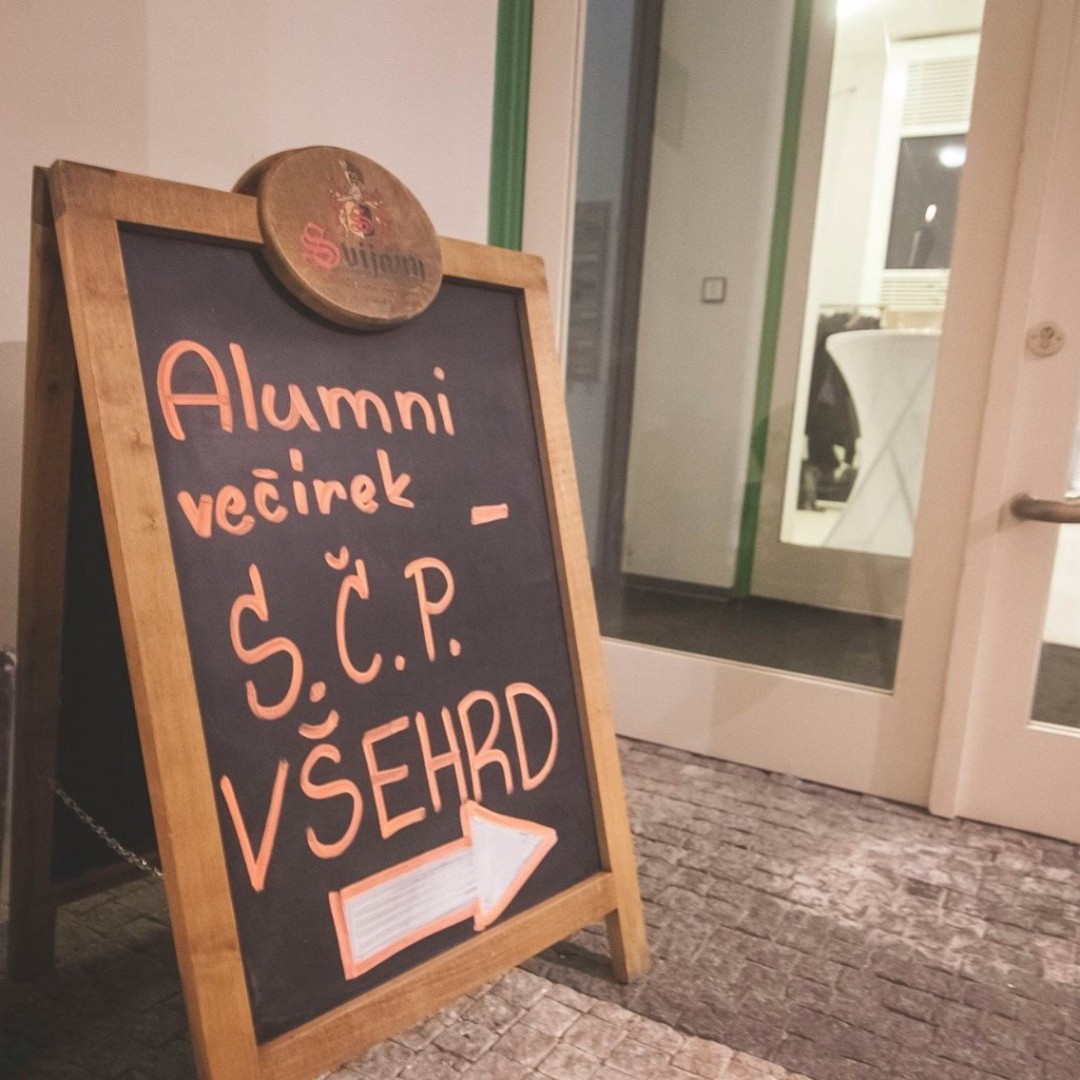 Svijany
Alumni
večírek -
S.Č.P.
VŠEHRD